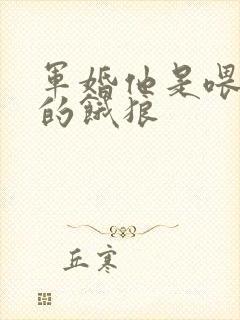 軍婚他是喂
的餓狼
丘寒